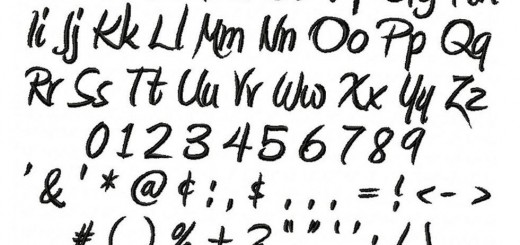 Ii Jj Kk Ll Mm Nn Oo Pp Qq
Rr Ss Tt Uu Vv Ww Xx Yy Zz
0 1 2 3 4 5 6 7 8 9
' & ' * @ ¢ : , $ , . . = ! < - >
# ( ) % + ?